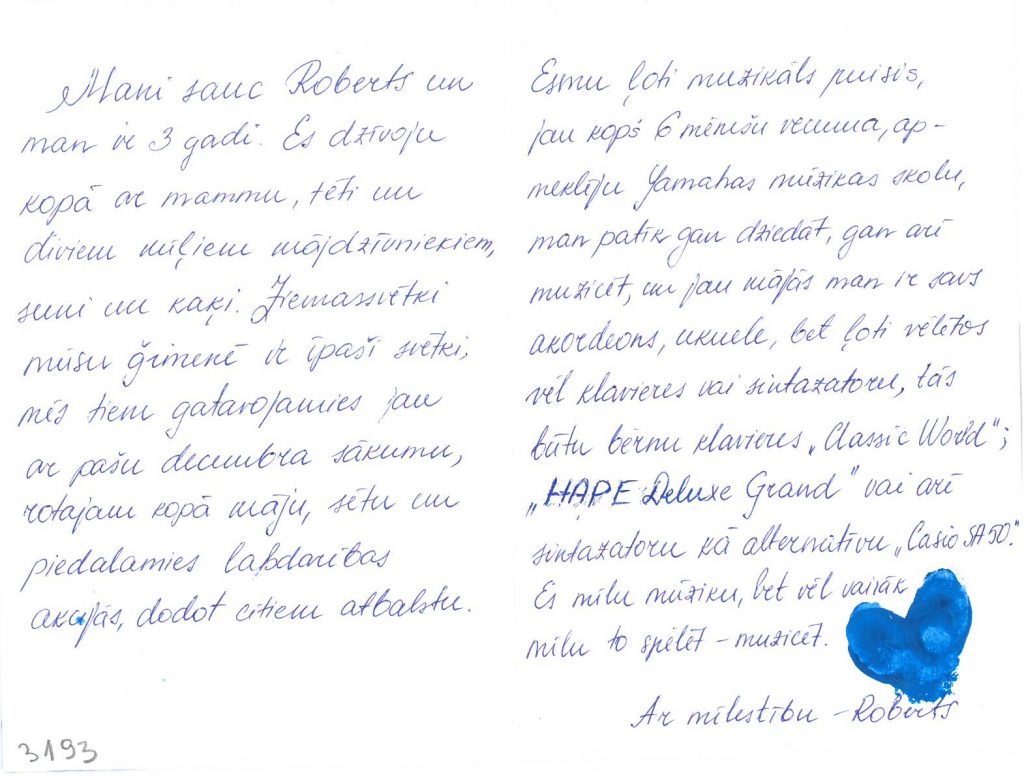 Mani sauc Roberts un
man ir 3 gadi. Es dzīvoju
kopā ar mammu, tēti un
diviem mīļiem mājdzīvniekiem,
suni un kaķi. Ziemassvētki
mūsu ģimenē ir īpaši svētki,
mēs tiem gatavojamies jau
ar pašu decembra sākumu,
rotajam kopā māju, sētu un
piedalamies labdarības
akcijās, dodot citiem atbalstu.
3193
Esmu ļoti muzikāls puisis,
jau kopš 6 mēnešu vecuma, ap-
meklēju Yamahas mūzikas skolu,
man patīk gan dziedāt, gan arī
muzicēt, un jau mājās man ir savs
akordeons, ukuele, bet ļoti vēlētos
vēl klavieres vai sintazatoru, tās
būtu bērnu klavieres „Classic World";
„HAPE Deluxe Grand" vai arī
sintazatoru kā alternatīvu „Casio SA50."
Es mīlu mūziku, bet vēl vairāk
mīlu to spēlēt – muzicēt.
Ar mīlestību – Roberts